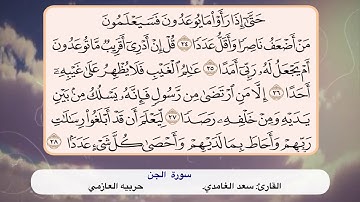 حَتَّىٰٓ إِذَا رَأَوْا۟ مَا يُوعَدُونَ فَسَيَعْلَمُونَ
مَنْ أَضْعَفُ نَاصِرًا وَأَقَلُّ عَدَدًا ٢٤ قُلْ إِنْ أَدْرِىٓ أَقَرِيبٌ مَّا تُوعَدُونَ
أَمْ يَجْعَلُ لَهُۥ رَبِّىٓ أَمَدًا ٢٥ عَٰلِمُ ٱلْغَيْبِ فَلَا يُظْهِرُ عَلَىٰ غَيْبِهِۦٓ
أَحَدًا ٢٦ إِلَّا مَنِ ٱرْتَضَىٰ مِن رَّسُولٍ فَإِنَّهُۥ يَسْلُكُ مِنۢ بَيْنِ
يَدَيْهِ وَمِنْ خَلْفِهِۦ رَصَدًا ٢٧ لِّيَعْلَمَ أَن قَدْ أَبْلَغُوا۟ رِسَٰلَٰتِ
رَبِّهِمْ وَأَحَاطَ بِمَا لَدَيْهِمْ وَأَحْصَىٰ كُلَّ شَىْءٍ عَدَدًۢا ٢٨
سورة الجن
القارئ: سعد الغامدي. حربيه العازمي